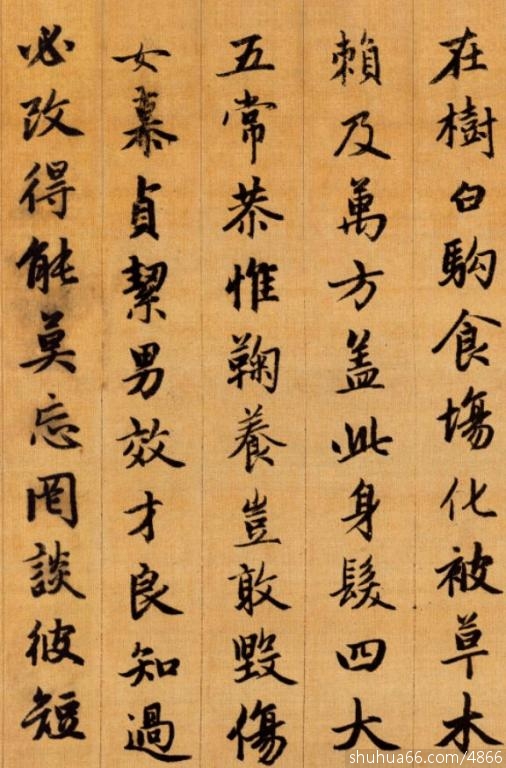 在樹白駒食場化被草木
賴及萬方盖此身髮四大
五常恭惟鞠養豈敢毀傷
女慕貞絜男效才良知過
必改得能莫忘罔談彼短
shuhua66.com/4866